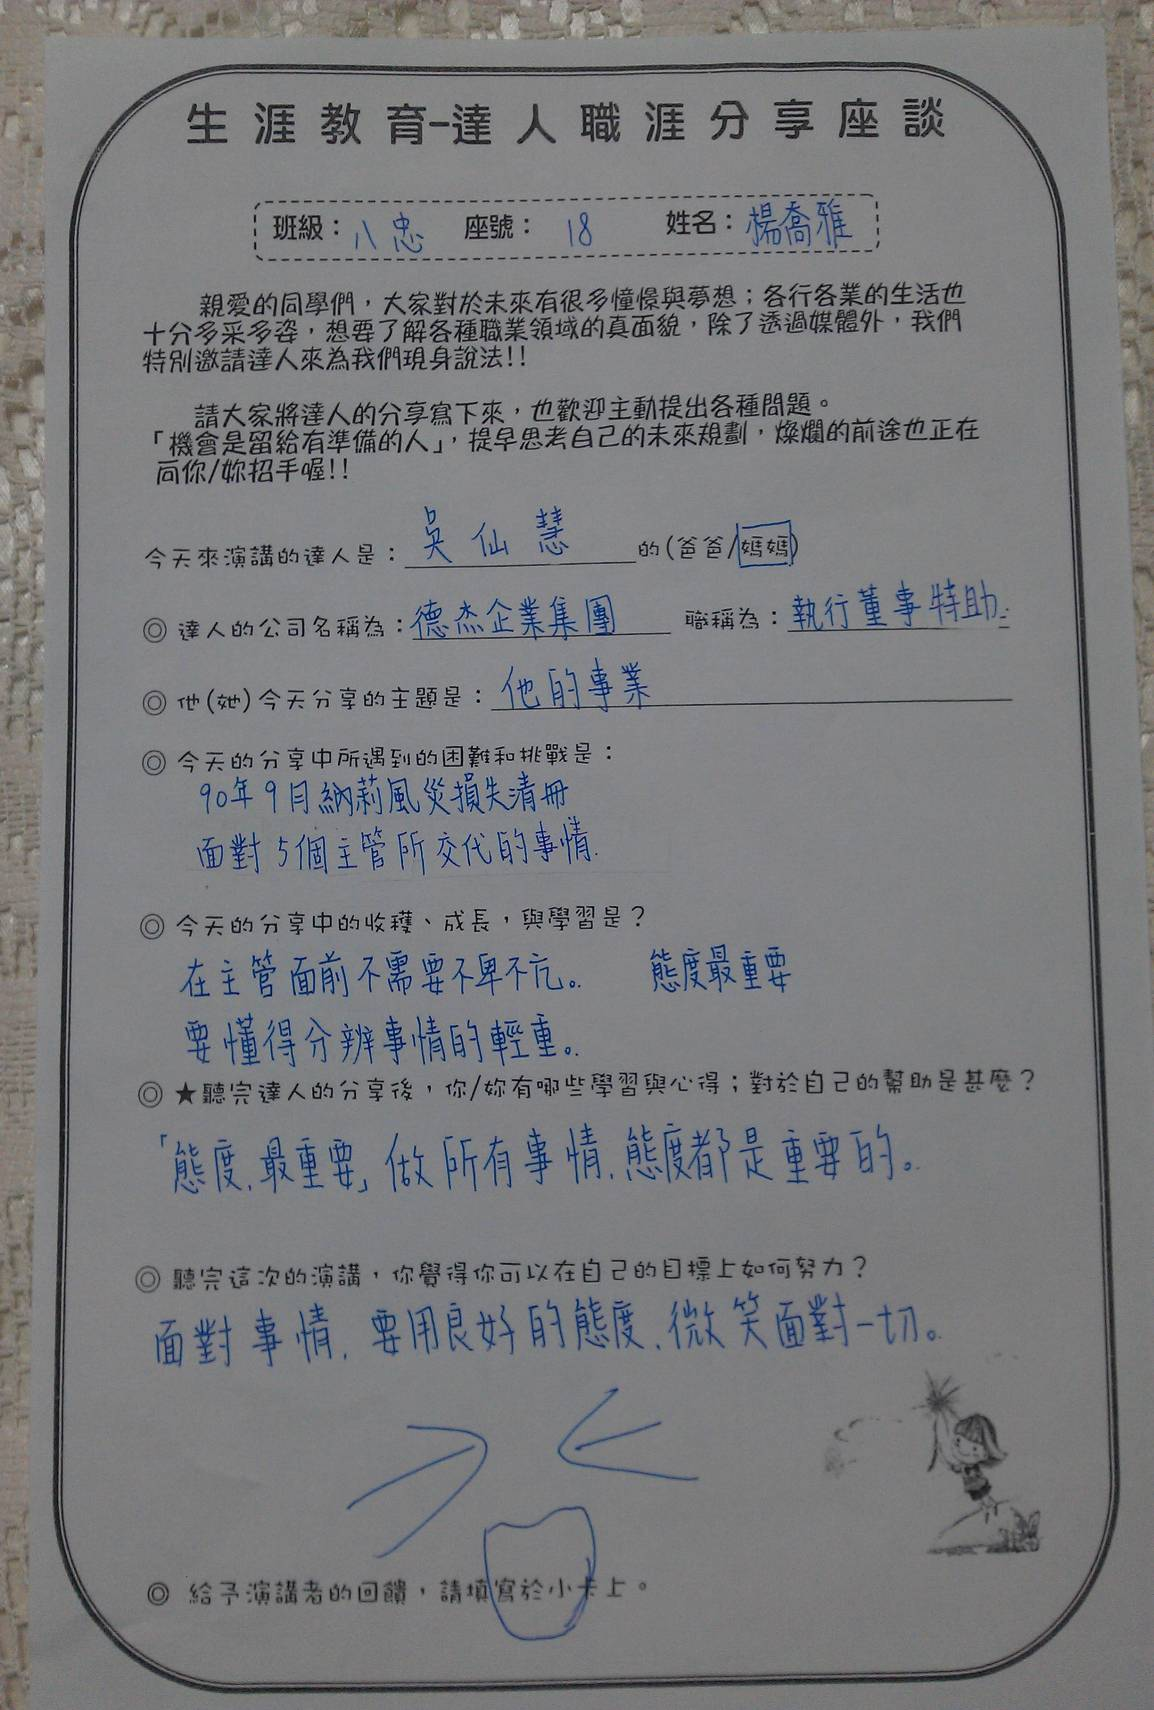 生涯教育-達人職涯分享座談
班級：八忠 座號：18 姓名：楊喬雅
親愛的同學們，大家對於未來有很多憧憬與夢想；各行各業的生活也
十分多采多姿，想要了解各種職業領域的真面貌，除了透過媒體外，我們
特別邀請達人來為我們現身說法!!
請大家將達人的分享寫下來，也歡迎主動提出各種問題。
「機會是留給有準備的人」，提早思考自己的未來規劃，燦爛的前途也正在
向你/妳招手喔!!
今天來演講的達人是：吳仙慧 的(爸爸/媽媽)
◎ 達人的公司名稱為：德杰企業集團 職稱為：執行董事特助
◎ 他(她)今天分享的主題是：他的事業
◎ 今天的分享中所遇到的困難和挑戰是：
90年9月納莉風災損失清冊
面對5個主管所交代的事情.
◎ 今天的分享中的收穫、成長，與學習是？
在主管面前不需要不卑不亢。 態度最重要
要懂得分辨事情的輕重。
◎ ★聽完達人的分享後，你/妳有哪些學習與心得；對於自己的幫助是甚麼？
「態度,最重要」做所有事情,態度都是重要的。
◎ 聽完這次的演講，你覺得你可以在自己的目標上如何努力？
面對事情,要用良好的態度,微笑面對一切。
◎ 給予演講者的回饋，請填寫於小卡上。